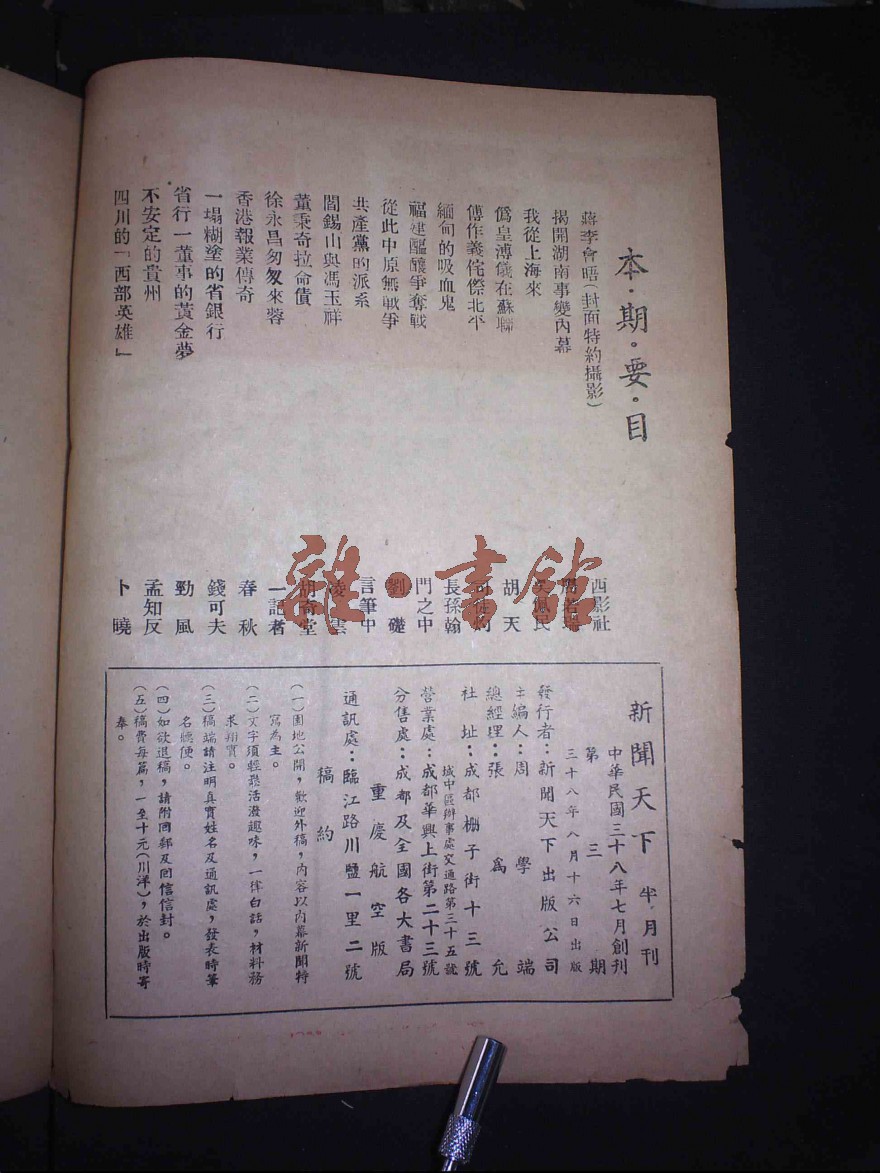 本·期·要·目
蔣李會晤(封面特約攝影)
西影社
揭開湖南事變內幕
我從上海來
吳佩民
僞皇溥儀在蘇聯
胡天
傅作義侘傺北平
緬甸的吸血鬼
長孫翰
福建醞釀爭奪戰
門之中
從此中原無戰爭
劉礎
共產黨的派系
言筆中
閻錫山與馮玉祥
凌雲
董秉奇拉命債
胡奇堂
徐永昌匆匆來蓉
一記者
香港報業傳奇
春秋
一塌糊塗的省銀行
錢可夫
省行一董事的黃金夢
勁風
不安定的貴州
孟知反
四川的「西部英雄」
卜曉
新聞天下 半·月刊
中華民國三十八年七月創刊
第三期
三十八年八月十六日出版
發行者:新聞天下出版公司
主編人:周學端
總經理:張爲允
社址:成都棚子街十三號
城中區辦事處交通路第三十五號
營業處:成都華興上街第二十三號
分售處:成都及全國各大書局
重慶航空版
通訊處:臨江路川鹽一里二號
稿約
(一)園地公開,歡迎外稿,內容以內幕新聞特
寫為主。
(二)文字須輕鬆活潑趣味,一律白話,材料務
求翔實。
(三)稿端請注明真實姓名及通訊處,發表時筆
名聽便。
(四)如欲退稿,請附回郵及回信信封。
(五)稿費每篇,一至十元(川洋),於出版時寄
奉。
雜·書館